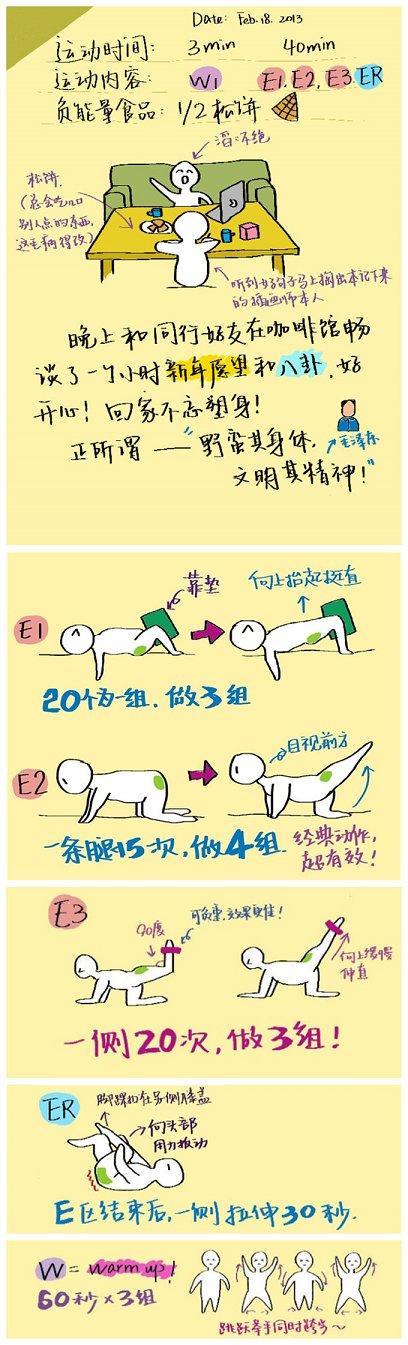 Date: Feb. 18. 2013
运动时间: 3min 40min
运动内容: W1 E1. E2. E3. ER
负能量食品: 1/2 松饼
滔滔不绝
松饼.
(总会吃几口
别人点的东西,
这毛病得改)
听到好句子马上掏出本记下来
的插画师本人
晚上和同行好友在咖啡馆畅
谈了一个小时新年愿望和八卦, 好
开心! 回家不忘塑身!
正所谓——“野蛮其身体,
毛泽东
文明其精神!”
E1
靠垫
向上抬起挺直
20个为一组, 做3组
E2
目视前方
一条腿15次, 做4组.
经典动作,
超有效!
E3
90度
可负重, 效果更佳!
向上缓慢
伸直
一侧20次, 做3组!
ER
脚踝扣在另一侧膝盖
向头部
用力扳动
E区结束后, 一侧拉伸30秒.
W = warm up!
60秒×3组
跳跃举手同时跨步~